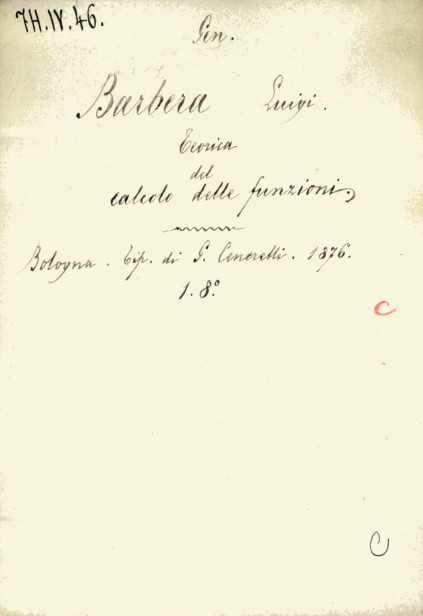 7H.IV.46.
Gen.
Barbera Luigi.
Teorica
del
calcolo delle funzioni.
Bologna. Tip. di G. Cenerelli. 1876.
1. 8.º
C
C